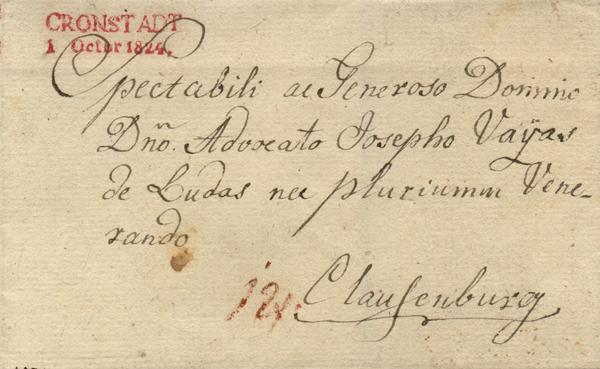 CRONSTADT
1 Octbr 1824.
Spectabili ac Generoso Domino
Dnõ. Advocato Josepho Vajas
de Ludas nec pluriumm Vene-
rando
Clausenburg